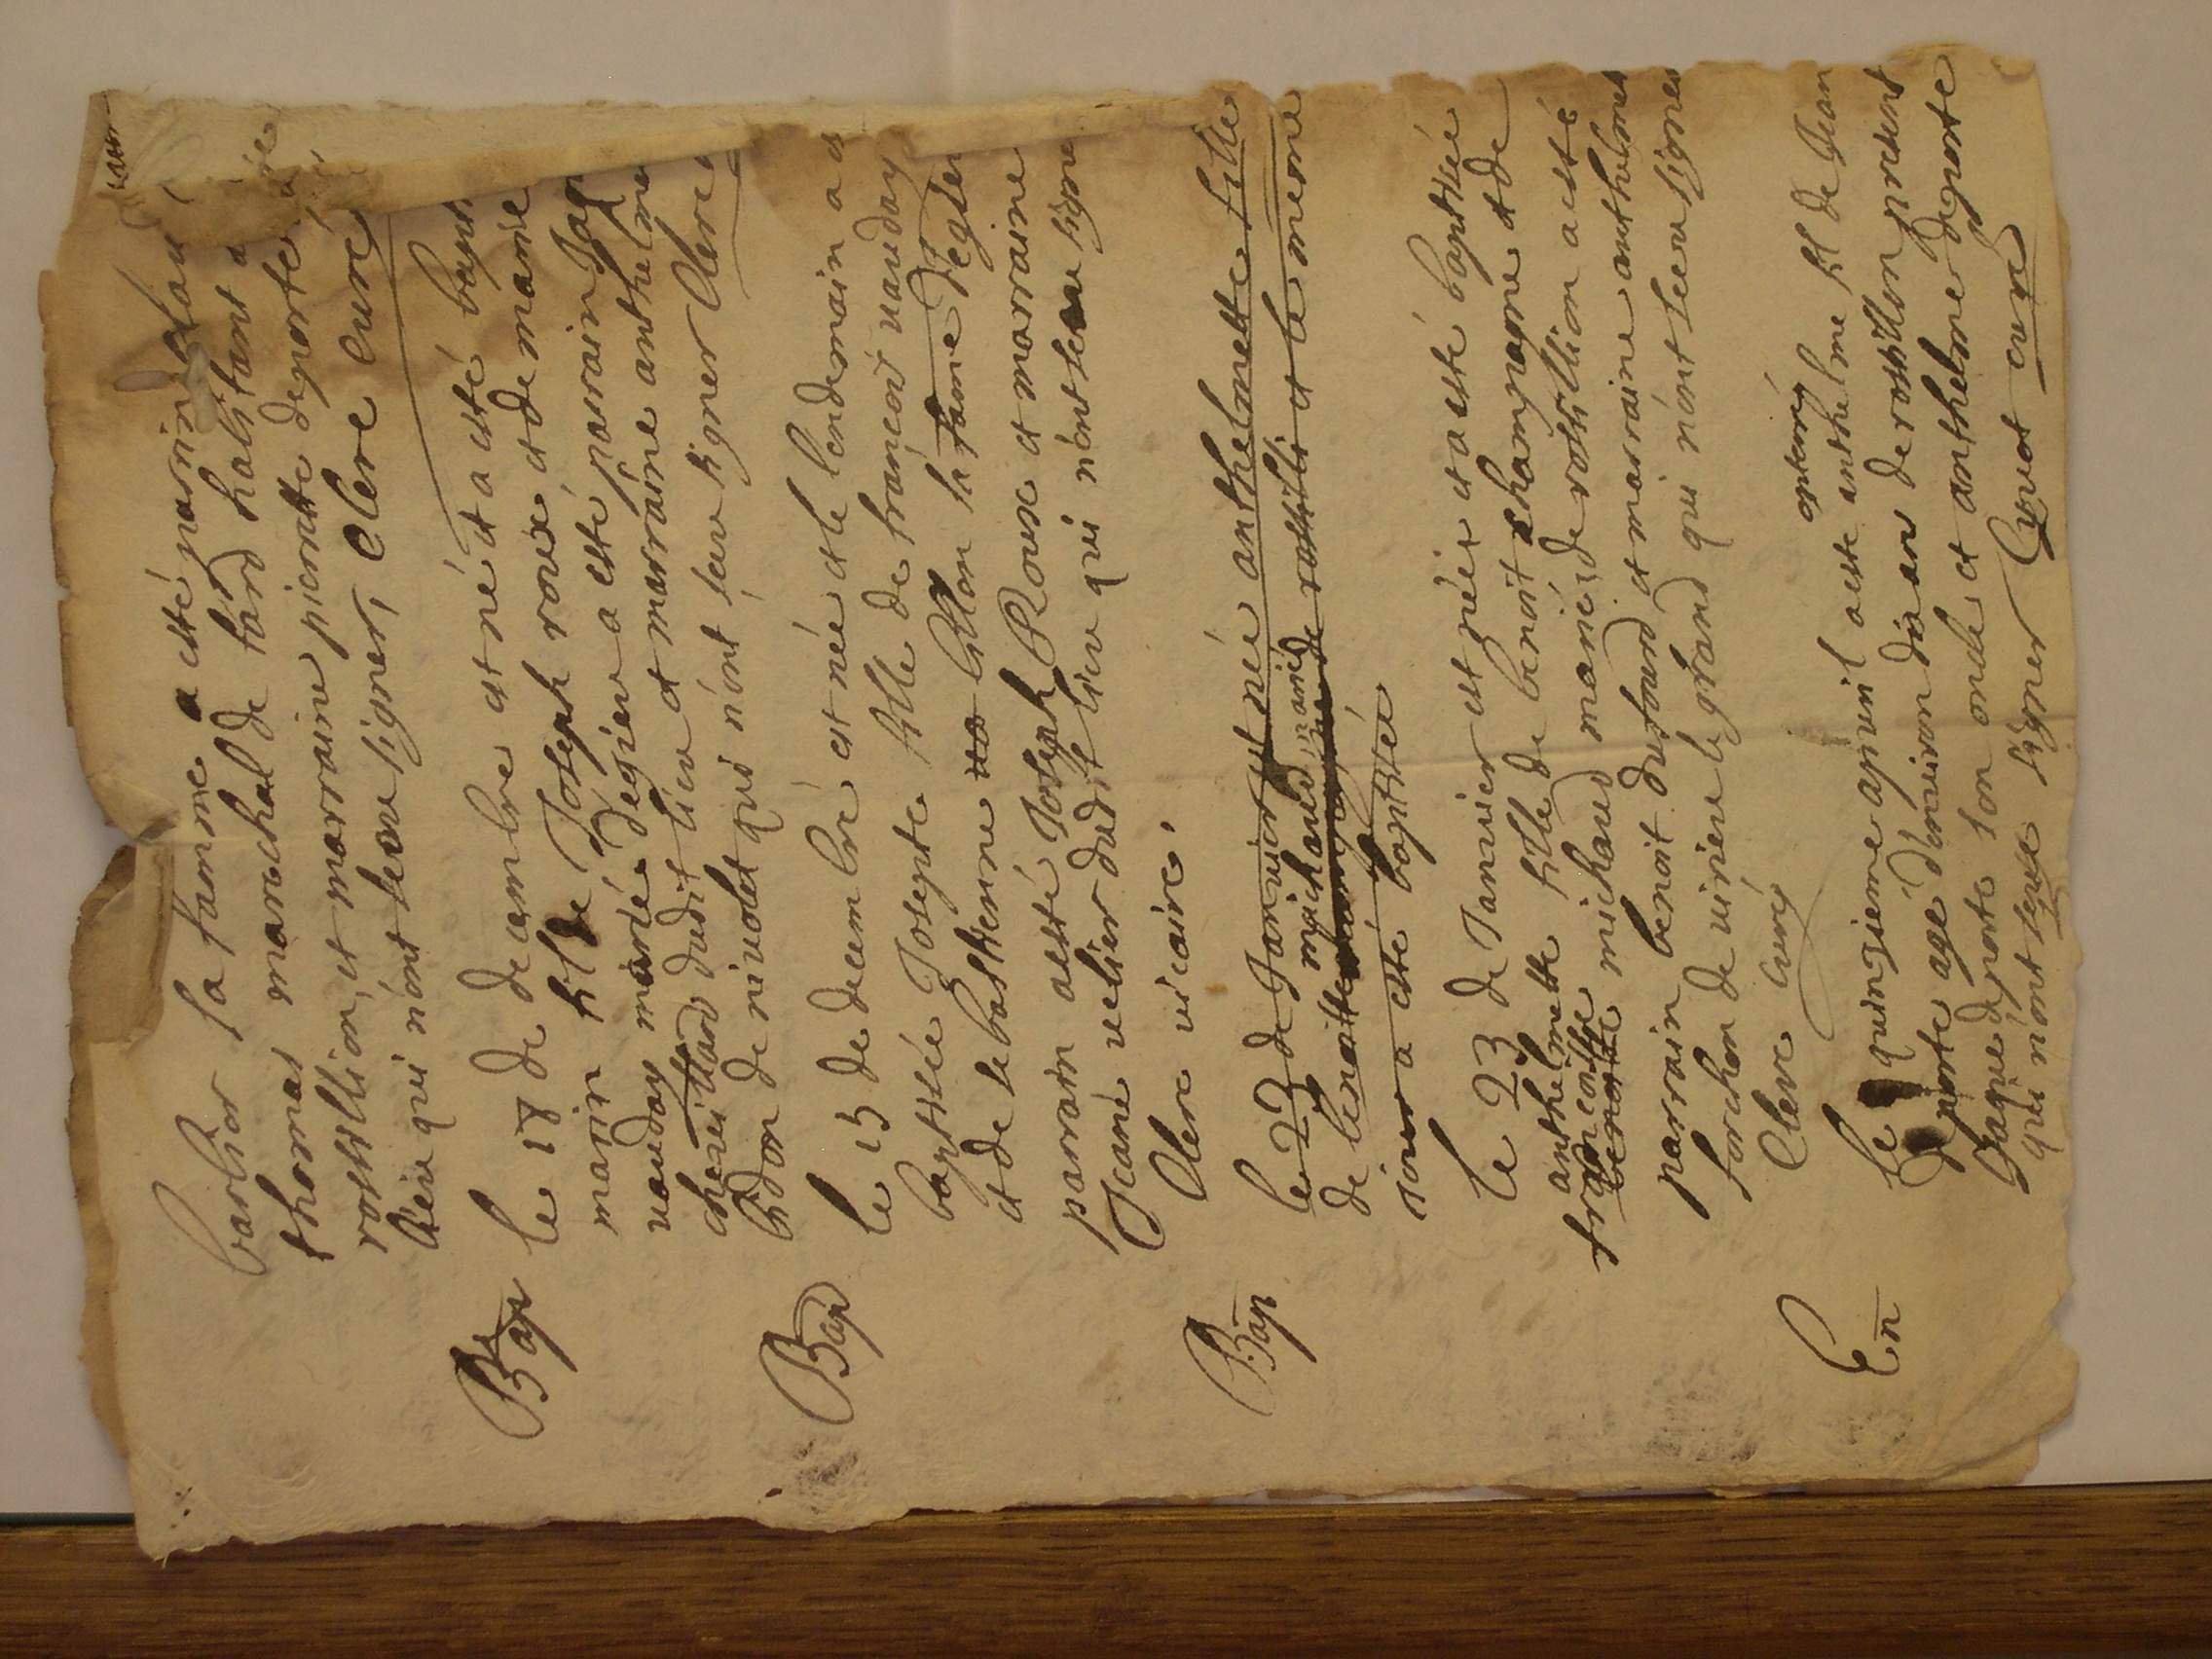 barbier sa famme a esté parrin
thomas marechal de fard habitant
rossillion, et marraine pierrette deporte
lieu qui n'ont sceu signer, Clerc Curé
Bap le 18 de decembre est né et a esté bapt
marin fil de Joseph roux et de marie
vauday mariés degieu a esté parrain Jaq
chevillard dudit lieu et marraine anthelme
bidon de nivolet qui n'ont sceu signer Clerc
Bap le 15 de decembre est née et le lendemain a es
baptisée Josepte fille de françois vauday
et de sebastienne billon sa fame degieu
parrain a esté Joseph Roux et marraine
Jeane velier dudit lieu qui n'ont sceu signe
Clerc vicaire
Bap le 22 de Janvier est né anthelmette fille
de benoitte michaud mariés de rossilli et le meme
jour a esté baptisée
le 23 de Janvier est née et a esté baptisée
anthelmette fille de benoit champagne et de
francoise
benoite michaud mariés de rossillion a esté
parrain benoit dufourd et marraine anthelmet
forchon de virieu le grand qui n'ont sceu signer
Clerc curé
En le quinzieme apvril a este enterré anthelme fil de Jean
deporte agé d'environ dix an de rossillon present
Jaque deporte son oncle et anthelme deporte
qui n'ont sceu signer Guyot curé